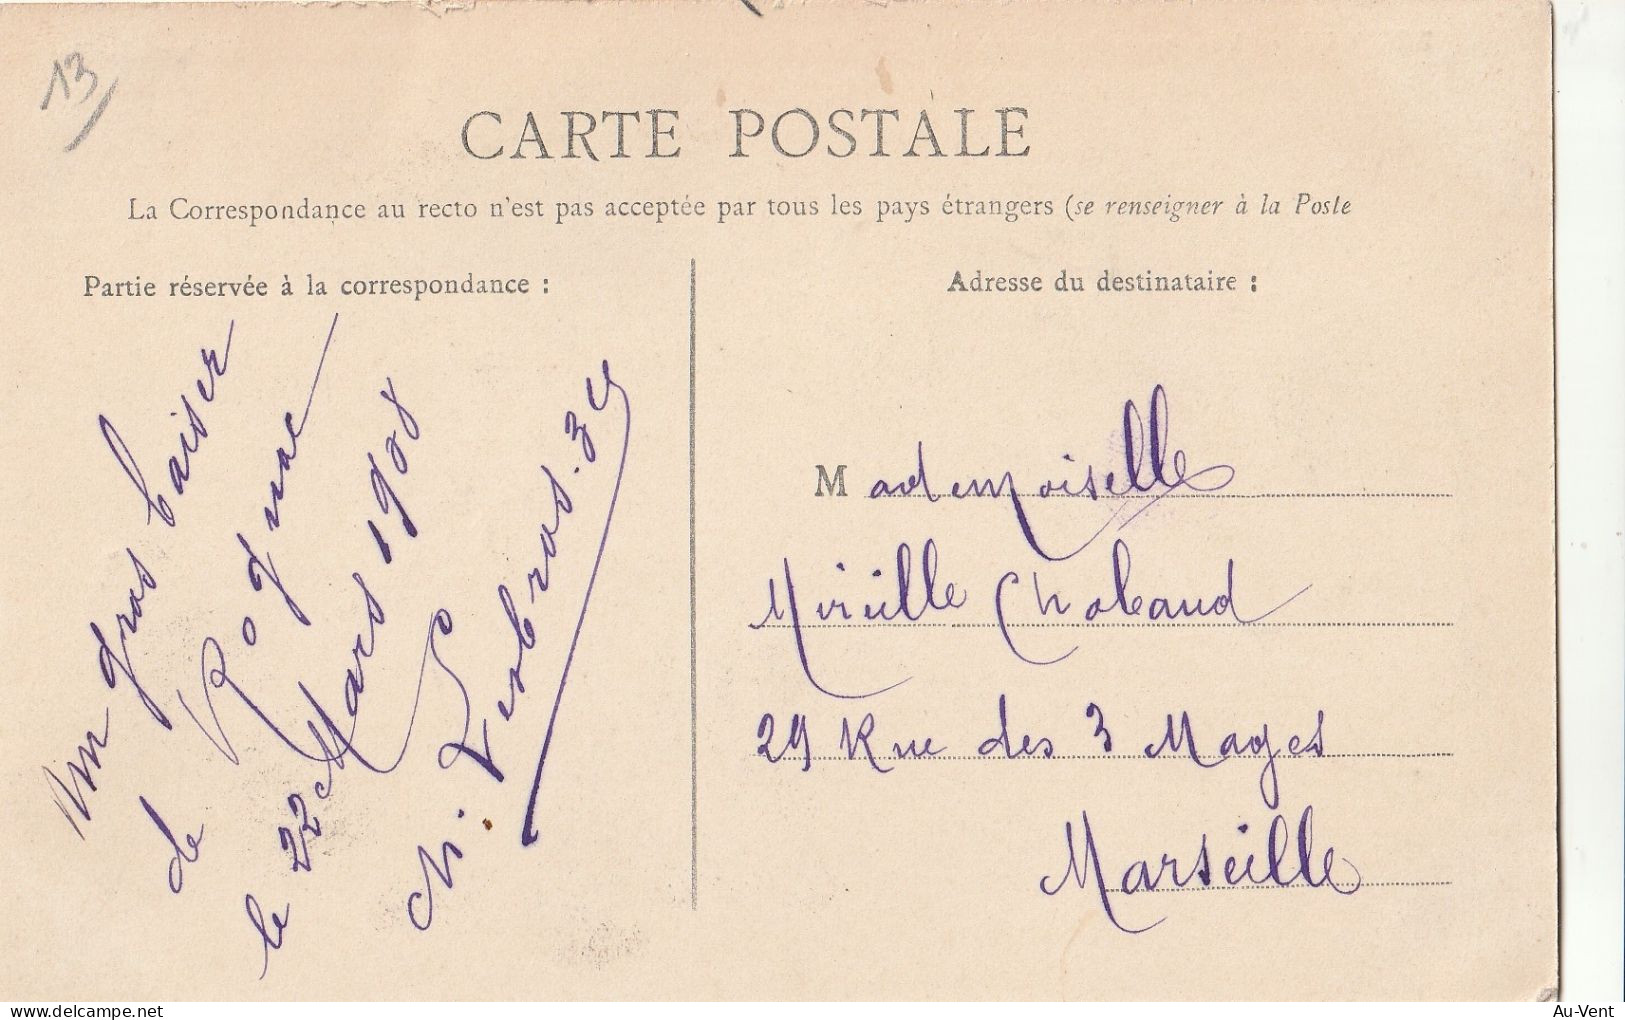 13
CARTE POSTALE
La Correspondance au recto n'est pas acceptée par tous les pays étrangers (se renseigner à la Poste
Partie réservée à la correspondance :
un gros baiser
de Rognac
le 22 Mars 1908
M.
Adresse du destinataire :
Mademoiselle
Mireille Chabaud
29 Rue des 3 Mages
Marseille
delcampe.net
Au-Vent